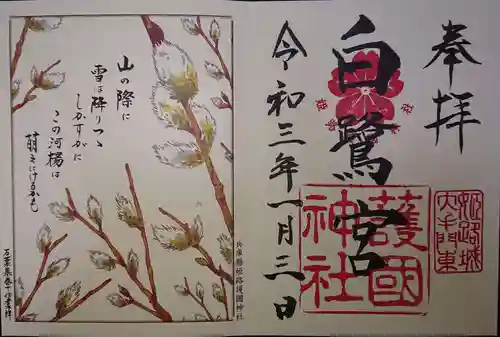 奉拝
白鷺宮
令和三年一月三日
護國
神社
姫路城
大手門東
山の際に
雪は降りつゝ
しかすがに
この河楊は
萌えにけるかも
万葉集巻十 作者不詳
兵庫縣姫路護國神社